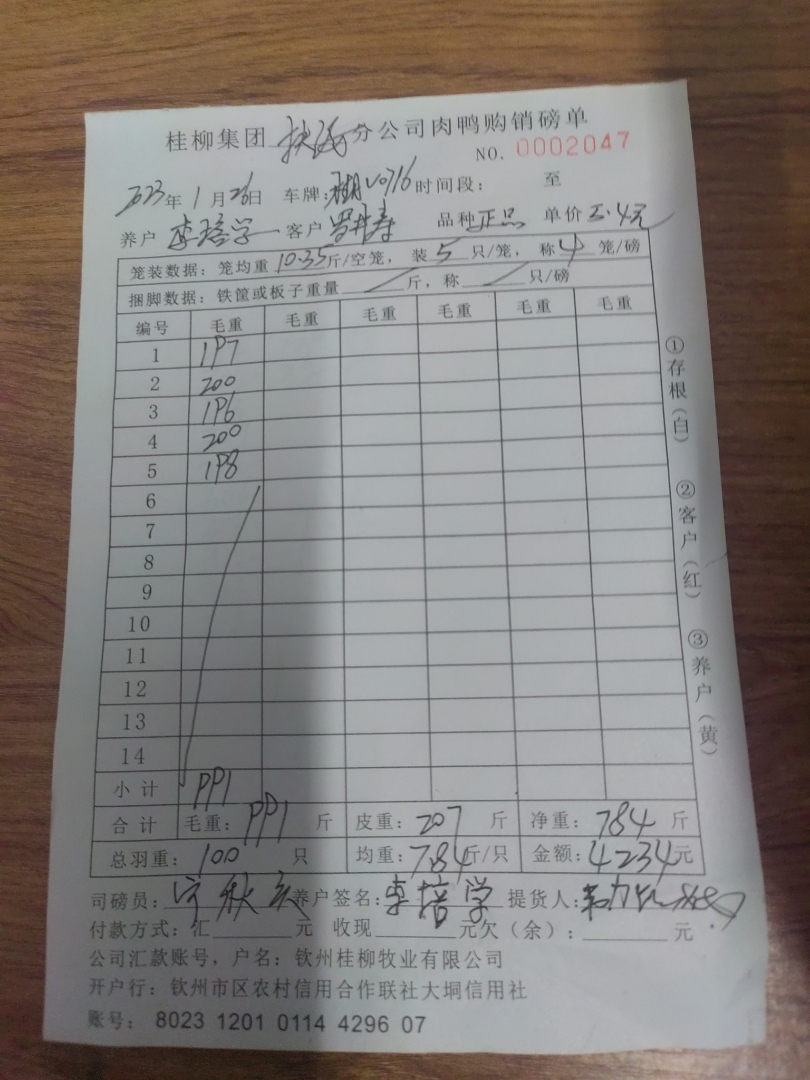 桂柳集团 分公司肉鸭购销磅单
NO. 0002047
2023年 1月26日 车牌: V0716 时间段: 至
养户 李培学 客户 罗井寿 品种 正品 单价 5.4元
笼装数据: 笼均重 10.35斤/空笼, 装 5 只/笼, 称 4 笼/磅
捆脚数据: 铁筐或板子重量 / 斤, 称 / 只/磅
编号 毛重 毛重 毛重 毛重 毛重 毛重
1 197
2 200
3 196
4 200
5 198
6
7
8
9
10
11
12
13
14
小计 991
合计 毛重: 991 斤 皮重: 207 斤 净重: 784 斤
总羽重: 100 只 均重: 7.84斤/只 金额: 4234元
司磅员: 养户签名: 李培学 提货人:
付款方式: 汇 元 收现 元欠(余): 元
公司汇款账号,户名: 钦州桂柳牧业有限公司
开户行: 钦州市区农村信用合作联社大垌信用社
账号: 8023 1201 0114 4296 07
①存根(白)
②客户(红)
③养户(黄)